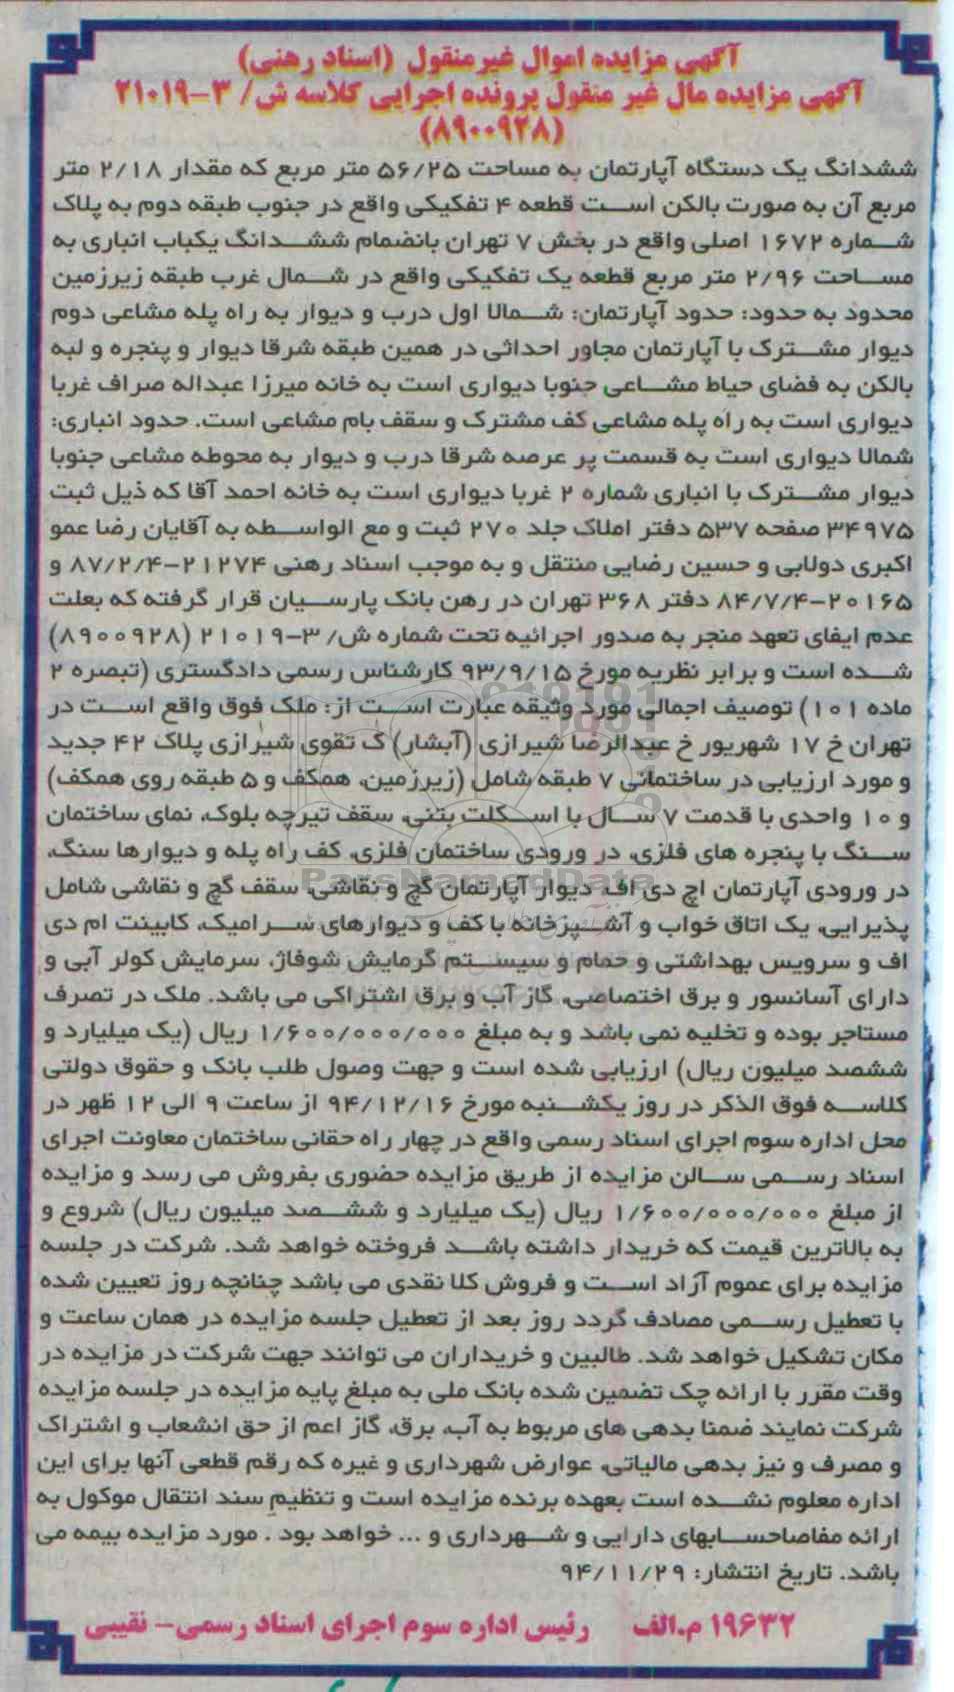 آگهی مزایده اموال غیرمنقول (اسناد رهنی)
آگهی مزایده مال غیر منقول پرونده اجرایی کلاسه ش/ ۳-۲۱۰۱۹
(۸۹۰۰۹۲۸)
ششدانگ یک دستگاه آپارتمان به مساحت ۵۶/۲۵ متر مربع که مقدار ۲/۱۸ متر
مربع آن به صورت بالکن است قطعه ۴ تفکیکی واقع در جنوب طبقه دوم به پلاک
شماره ۱۶۷۲ اصلی واقع در بخش ۷ تهران بانضمام ششدانگ یکباب انباری به
مساحت ۲/۹۶ متر مربع قطعه یک تفکیکی واقع در شمال غرب طبقه زیرزمین
محدود به حدود: حدود آپارتمان: شمالا اول درب و دیوار به راه پله مشاعی دوم
دیوار مشترک با آپارتمان مجاور احداثی در همین طبقه شرقا دیوار و پنجره و لبه
بالکن به فضای حیاط مشاعی جنوبا دیواری است به خانه میرزا عبداله صراف غربا
دیواری است به راه پله مشاعی کف مشترک و سقف بام مشاعی است. حدود انباری:
شمالا دیواری است به قسمت پر عرصه شرقا درب و دیوار به محوطه مشاعی جنوبا
دیوار مشترک با انباری شماره ۲ غربا دیواری است به خانه احمد آقا که ذیل ثبت
۳۴۹۷۵ صفحه ۵۳۷ دفتر املاک جلد ۲۷۰ ثبت و مع الواسطه به آقایان رضا عمو
اکبری دولابی و حسین رضایی منتقل و به موجب اسناد رهنی ۲۱۲۷۴-۸۷/۲/۴ و
۲۰۱۶۵-۸۴/۷/۴ دفتر ۳۶۸ تهران در رهن بانک پارسیان قرار گرفته که بعلت
عدم ایفای تعهد منجر به صدور اجرائیه تحت شماره ش/ ۳-۲۱۰۱۹ (۸۹۰۰۹۲۸)
شده است و برابر نظریه مورخ ۹۳/۹/۱۵ کارشناس رسمی دادگستری (تبصره ۲
ماده ۱۰۱) توصیف اجمالی مورد وثیقه عبارت است از: ملک فوق واقع است در
تهران خ ۱۷ شهریور خ عبدالرضا شیرازی (آبشار) ک تقوی شیرازی پلاک ۴۲ جدید
و مورد ارزیابی در ساختمانی ۷ طبقه شامل (زیرزمین، همکف و ۵ طبقه روی همکف)
و ۱۰ واحدی با قدمت ۷ سال با اسکلت بتنی، سقف تیرچه بلوک، نمای ساختمان
سنگ با پنجره های فلزی، در ورودی ساختمان فلزی، کف راه پله و دیوارها سنگ،
در ورودی آپارتمان اچ دی اف، دیوار آپارتمان گچ و نقاشی، سقف گچ و نقاشی شامل
پذیرایی، یک اتاق خواب و آشپزخانه با کف و دیوارهای سرامیک، کابینت ام دی
اف و سرویس بهداشتی و حمام و سیستم گرمایش شوفاژ، سرمایش کولر آبی و
دارای آسانسور و برق اختصاصی، گاز آب و برق اشتراکی می باشد. ملک در تصرف
مستاجر بوده و تخلیه نمی باشد و به مبلغ ۱/۶۰۰/۰۰۰/۰۰۰ ریال (یک میلیارد و
ششصد میلیون ریال) ارزیابی شده است و جهت وصول طلب بانک و حقوق دولتی
کلاسه فوق الذکر در روز یکشنبه مورخ ۹۴/۱۲/۱۶ از ساعت ۹ الی ۱۲ ظهر در
محل اداره سوم اجرای اسناد رسمی واقع در چهار راه حقانی ساختمان معاونت اجرای
اسناد رسمی سالن مزایده از طریق مزایده حضوری بفروش می رسد و مزایده
از مبلغ ۱/۶۰۰/۰۰۰/۰۰۰ ریال (یک میلیارد و ششصد میلیون ریال) شروع و
به بالاترین قیمت که خریدار داشته باشد فروخته خواهد شد. شرکت در جلسه
مزایده برای عموم آزاد است و فروش کلا نقدی می باشد چنانچه روز تعیین شده
با تعطیل رسمی مصادف گردد روز بعد از تعطیل جلسه مزایده در همان ساعت و
مکان تشکیل خواهد شد. طالبین و خریداران می توانند جهت شرکت در مزایده در
وقت مقرر با ارائه چک تضمین شده بانک ملی به مبلغ پایه مزایده در جلسه مزایده
شرکت نمایند ضمنا بدهی های مربوط به آب، برق، گاز اعم از حق انشعاب و اشتراک
و مصرف و نیز بدهی مالیاتی، عوارض شهرداری و غیره که رقم قطعی آنها برای این
اداره معلوم نشده است بعهده برنده مزایده است و تنظیم سند انتقال موکول به
ارائه مفاصاحسابهای دارایی و شهرداری و ... خواهد بود . مورد مزایده بیمه می
باشد. تاریخ انتشار: ۹۴/۱۱/۲۹
۱۹۶۳۲ م.الف رئیس اداره سوم اجرای اسناد رسمی- نقیبی
ParsNamadData